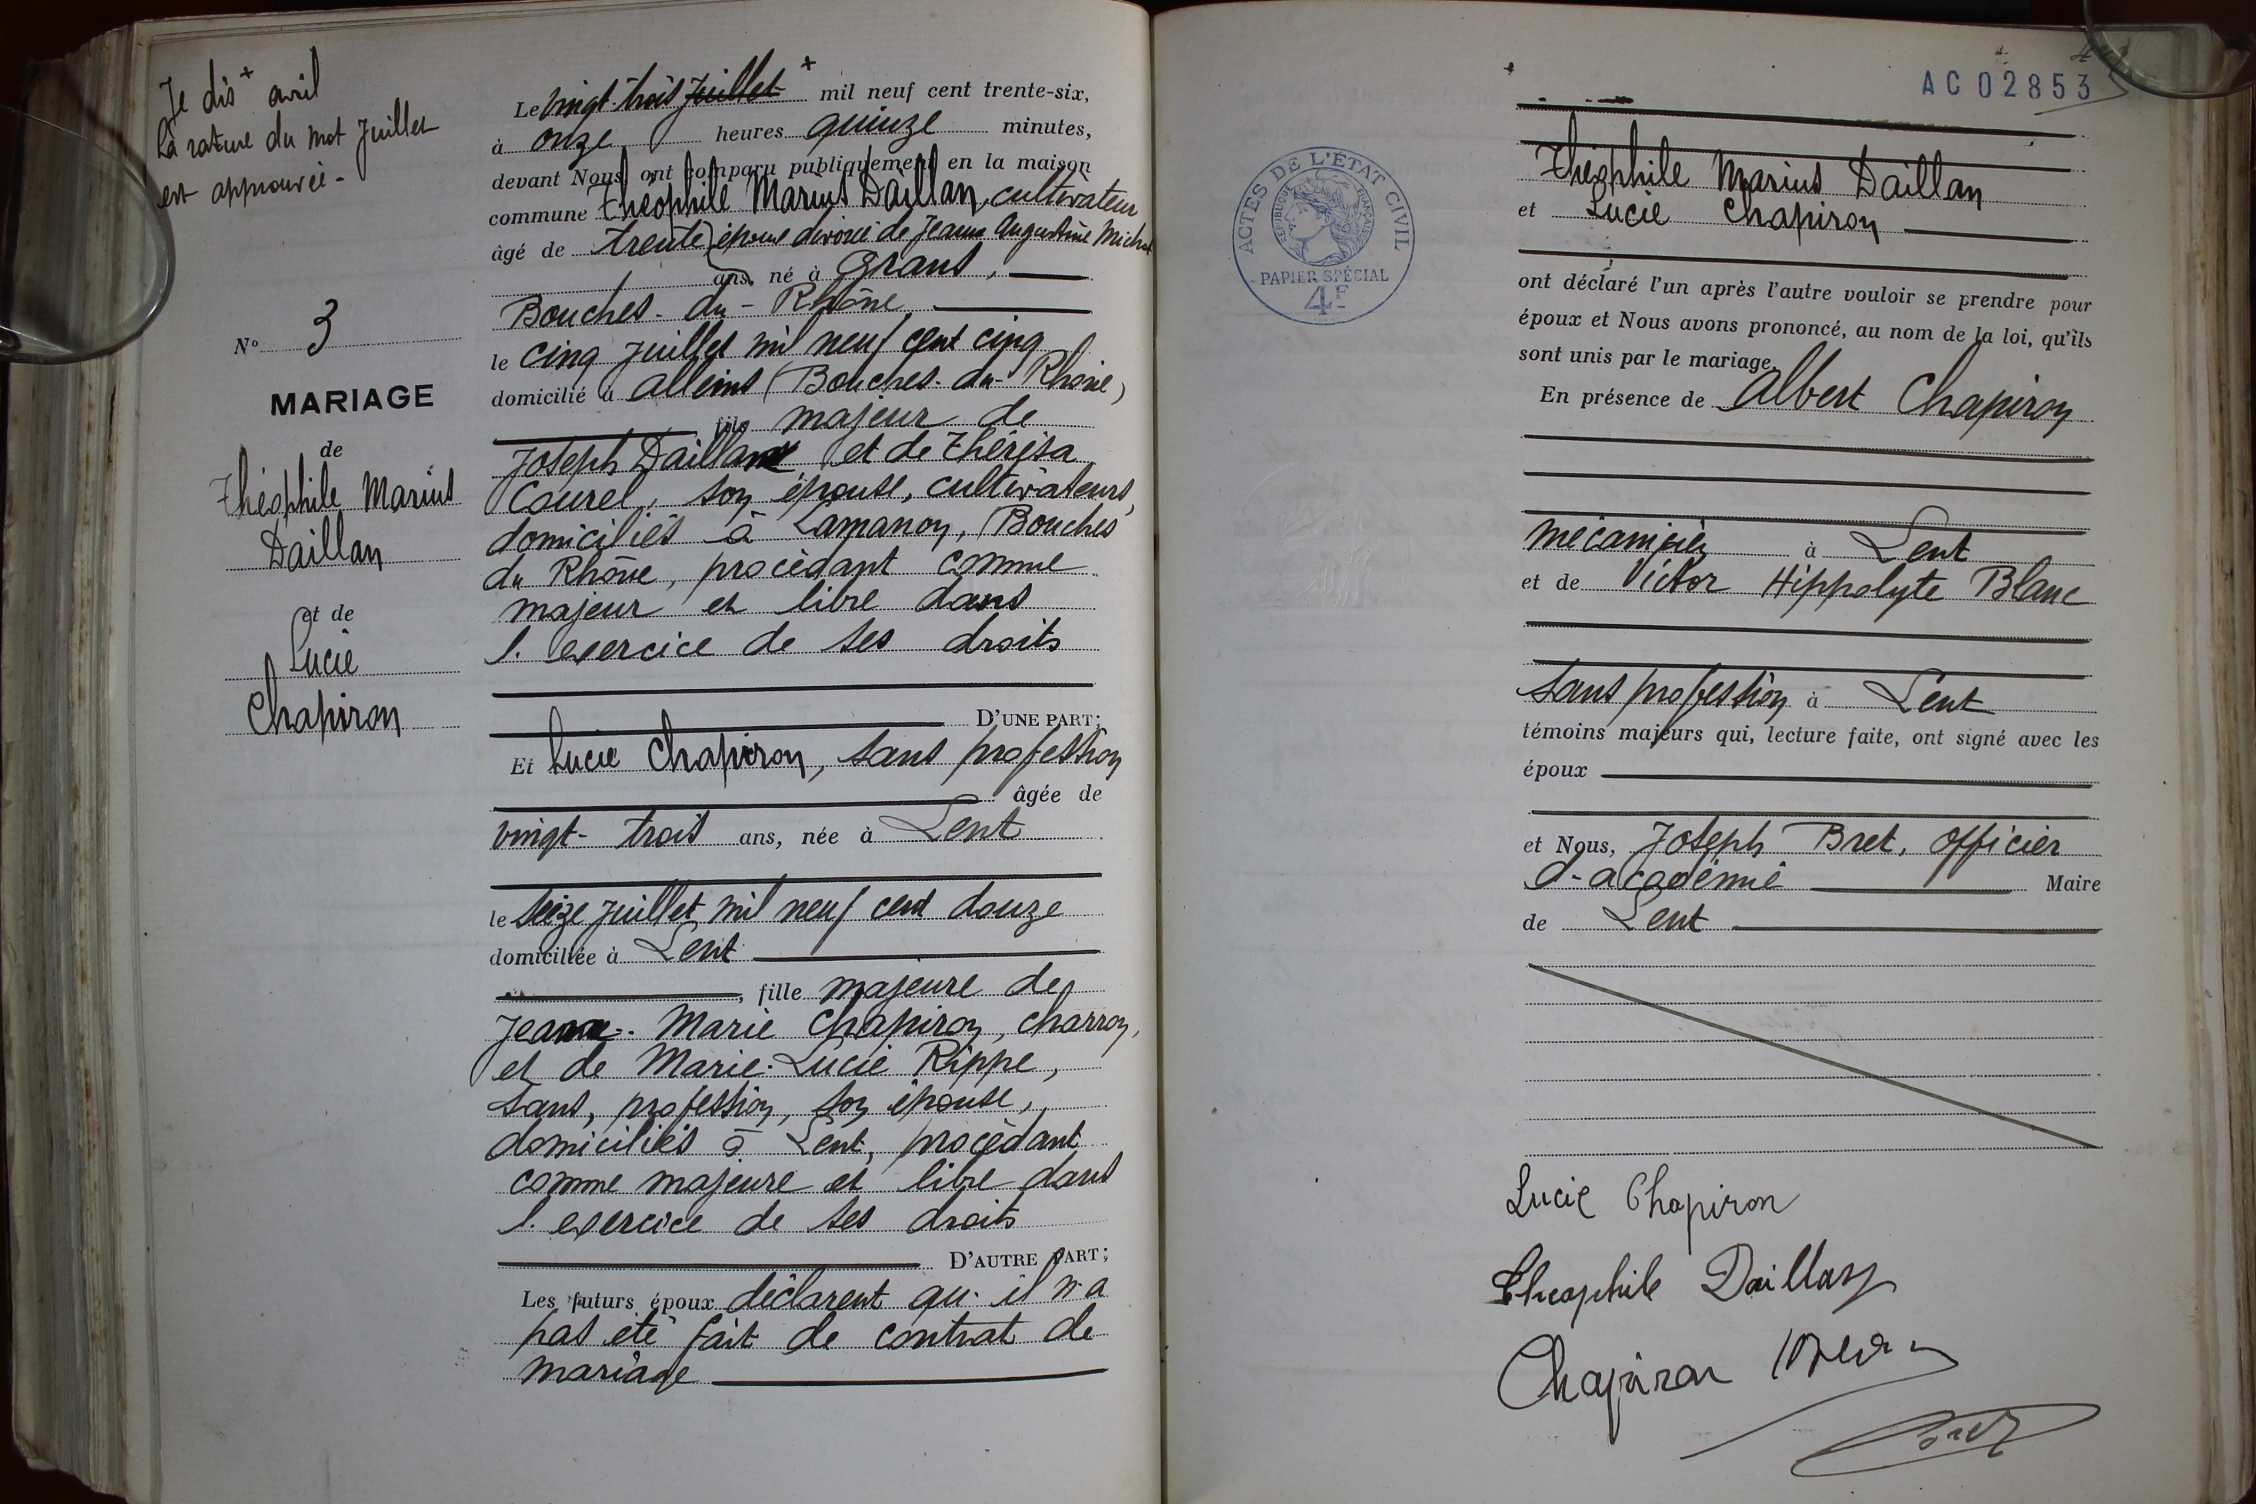 Je dis + avril
la rature du mot Juillet
est approuvée -
N° 3
MARIAGE
de
Théophile Marius
Daillan
et de
Lucie
Chapiron
Le vingt-trois Juillet + mil neuf cent trente-six,
à onze heures quinze minutes,
devant Nous ont comparu publiquement en la maison
commune Théophile Marius Daillan, cultivateur
âgé de trente (époux divorcé de Jeanne Augustine Michel
ans, né à Grans,
Bouches-du-Rhône
le cinq Juillet mil neuf cent cinq
domicilié à Alleins (Bouches-du-Rhône)
fils majeur de
Joseph Daillan et de Thérésa
Courel, son épouse, cultivateurs,
domiciliés à Lamanon, (Bouches
du Rhône, procédant comme
majeur et libre dans
l'exercice de ses droits
D'UNE PART;
Et Lucie Chapiron, sans profession
âgée de
vingt-trois ans, née à Lent
le seize Juillet mil neuf cent douze
domiciliée à Lent
, fille majeure de
Jean-Marie Chapiron, charron,
et de Marie-Lucie Rippe,
sans profession, son épouse,
domiciliés à Lent, procédant
comme majeure et libre dans
l'exercice de ses droits
D'AUTRE PART;
Les futurs époux déclarent qu'il n'a
pas été fait de contrat de
mariage
AC 02853
ACTES DE L'ÉTAT CIVIL
RÉPUBLIQUE FRANÇAISE
PAPIER SPÉCIAL
4F
Théophile Marius Daillan
et Lucie Chapiron
ont déclaré l'un après l'autre vouloir se prendre pour
époux et Nous avons prononcé, au nom de la loi, qu'ils
sont unis par le mariage.
En présence de Albert Chapiron
mécanicien à Lent
et de Victor Hippolyte Blanc
sans profession à Lent
témoins majeurs qui, lecture faite, ont signé avec les
époux
et Nous, Joseph Bret, officier
d'académie Maire
de Lent
Lucie Chapiron
Théophile Daillan
Chapiron
Bret